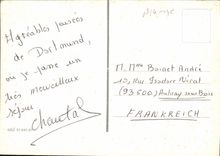 Agréables pensées
de Dortmund,
où je passe un
très merveilleux
séjour
Chantal
M. Mme Boinet André
13, Rue Isidore Nérat
(93500) Aulnay sous Bois
FRANKREICH